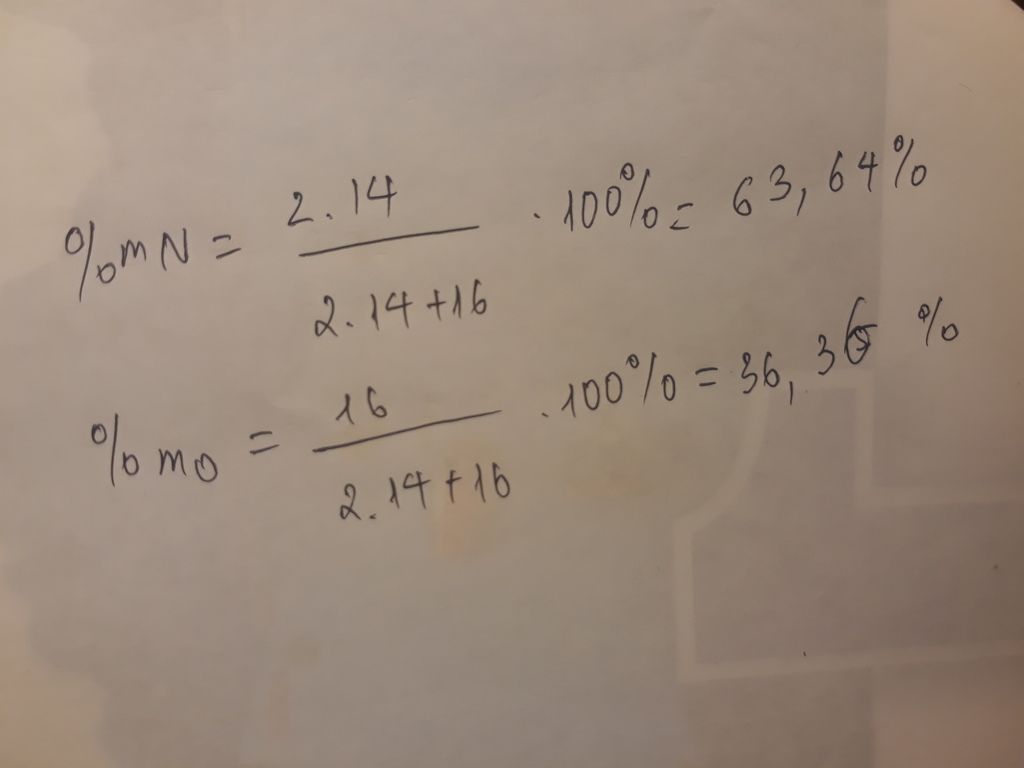 %mN = 2.14 / 2.14+16 . 100% = 63,64%
%mO = 16 / 2.14+16 . 100% = 36,36 %